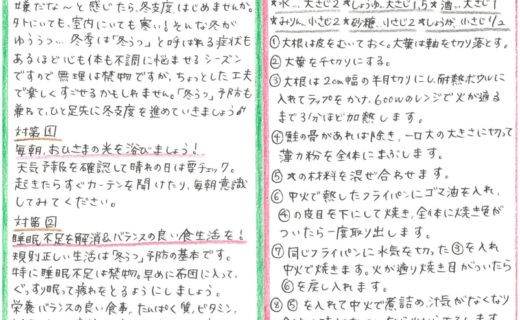 嫌だな〜と感じたら、冬支度はじめませんか。
外にいても、室内にいても寒い！そんな冬が
ゆううつ…。冬季は「冬うつ」と呼ばれる症状も
あるほど心も体も不調に悩ませるシーズン
ですので無理は禁物ですが、ちょっとした工夫
で楽しくすごせるかもしれません。「冬うつ」予防も
兼ねて、ひと足先に冬支度を進めていきましょう♪
対策①
毎朝、おひさまの光を浴びましょう！
天気予報を確認して晴れの日は要チェック。
起きたらすぐカーテンを開けたり、毎朝意識
してみてください。
対策②
睡眠不足を解消&バランスの良い食生活を！
規則正しい生活は「冬うつ」予防の基本です。
特に睡眠不足は禁物。早めに布団に入って、
ぐっすり眠って疲れをとるようにしましょう。
栄養バランスの良い食事、たんぱく質、ビタミン、
★水…大さじ2 ★しょうゆ…大さじ1.5 ★酒…大さじ1
★みりん…小さじ2 ★砂糖…小さじ2 ★しょうが…小さじ1/2
①大根は皮をむいておく。大葉は軸を切り落とす。
②大葉を千切りにする。
③大根は2cm幅の半月切りにし、耐熱ボウルに
入れてラップをかけ、600wのレンジで火が通る
まで3分ほど加熱します。
④鮭の骨があれば除き、一口大の大きさに切って
薄力粉を全体にまぶします。
⑤★の材料を混ぜ合わせます。
⑥中火で熱したフライパンにゴマ油を入れ、
④の皮目を下にして焼き、全体に焼き色が
ついたら一度取り出します。
⑦同じフライパンに水気を切った③を入れ
中火で焼きます。火が通り焼き目がついたら
⑥を戻し入れます。
⑧⑤を入れて中火で煮詰め、汁気がなくなり